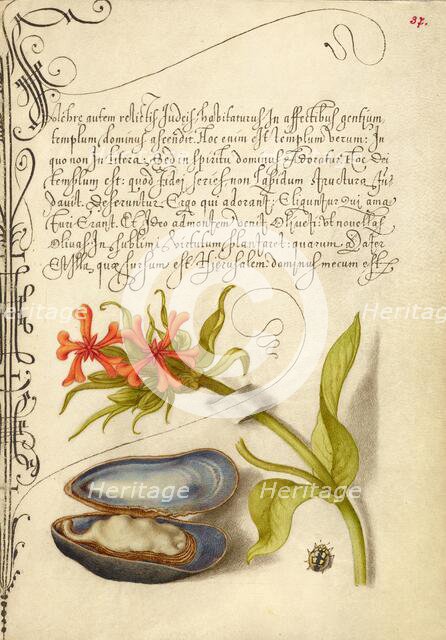 37.
Pulchre autem relictis Judeis, habitaturus In affectibus gentium
templum dominus ascendit. Hoc enim est templum verum: In
quo non In litera: sed in spiritu dominus Adoratur. Hoc dei
templum est: quod fidei series, non lapidum structura fun-
davit. Deseruntur Ergo qui adorant: Eliguntur qui ama
turi Erant. Et Ideo ad montem venit Oliveti: ut novellas
Olivas In sublimi virtutum plantaret: quarum Mater
Est Illa, quae sursum est Hierusalem: dominus mecum est
Heritage
Heritage
Heritage
Heritage
Heritage
Heritage